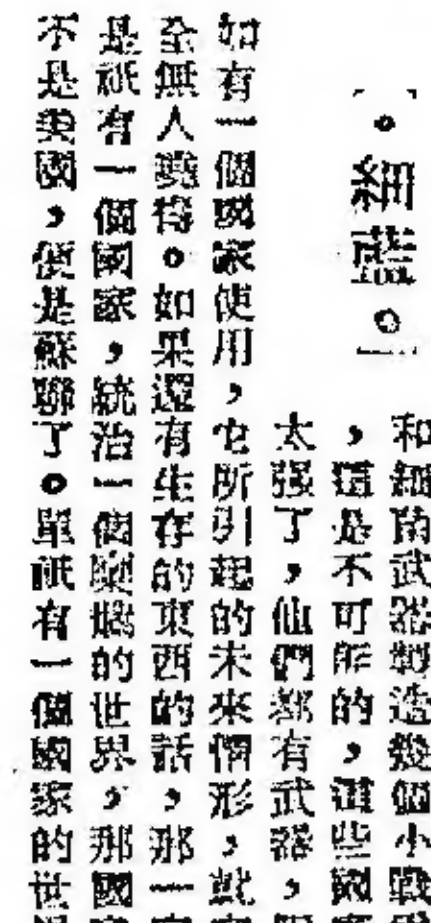 和細菌武器製造幾個小戰
，這是不可能的，這些國
太强了，他們都有武器，
如有一個國家使用，它所引起的未來情形，就
全無人曉得。如果還有生存的東西的話，那一
是祇有一個國家，統治一個的世界，那國
不是美國，便是蘇聯了。單祇有一個國家的世